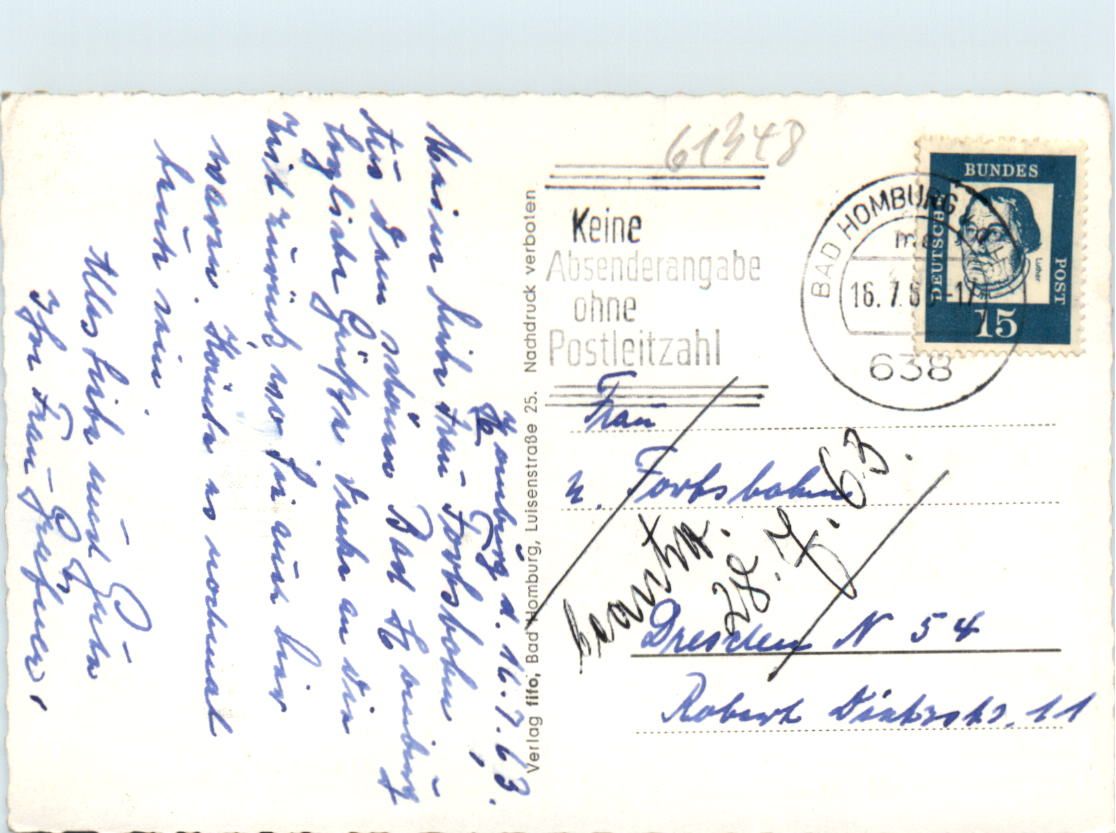 Homburg d. 16.7.63.
Meine liebe Frau Forbsbohm,
Aus dem schönen Bad Homburg
Grüße denke an die
Zeit zurück wo Sie auch hier
waren. Könnte es nochmal
heute sein.
Alles liebe und Gute
Ihre Frau
Verlag fifo, Bad Homburg, Luisenstraße 25. Nachdruck verboten
61348
Keine
Absenderangabe
ohne
Postleitzahl
BAD HOMBURG
16.7.6 -17
638
DEUTSCHE
BUNDES
POST
Luther
15
Frau
Forbsbohm
beantw.
28.7.63.
Dresden N 54
Robert Dietzstr. 11